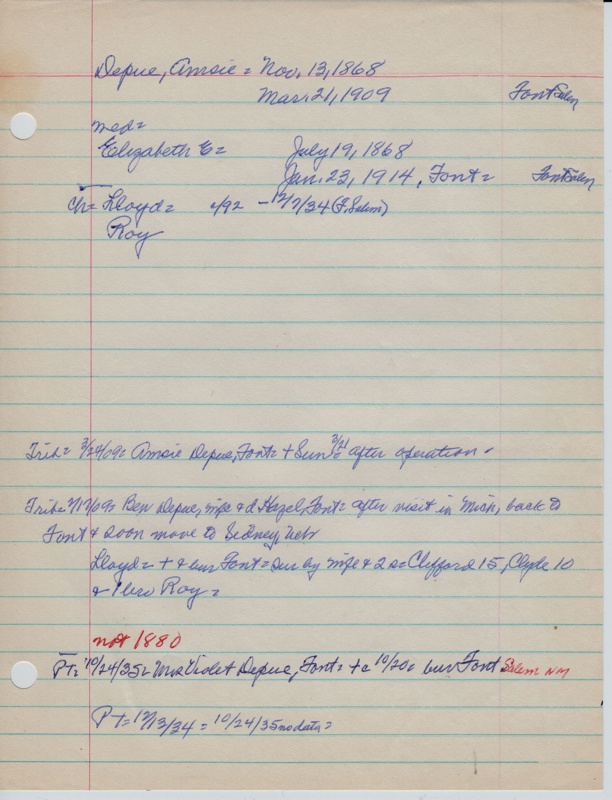 Depue, Amsie = Nov. 13, 1868
Mar. 21, 1909 Font Salem
med=
Elizabeth E= July 19, 1868
Jan. 23, 1914, Font= Font Salem
Ch= Lloyd= 4/92 - 12/7/34 (F. Salem)
Roy
Trib= 3/24/09= Amsie Depue, Font= + Sun= 3/21 after operation -
Ben Depue, wife & d Hazel, Font= after visit in Mich, back to
Font & soon move to Sidney, Neb
Lloyd= + & bur Font= sur by wife & 2 s= Clifford 15, Clyde 10
& 1 bro Roy=
not 1880
PT= 10/24/35= Mrs Violet Depue, Font= +c 10/20= bur Font Salem NM
PT=12/13/34 = 10/24/35 no data=